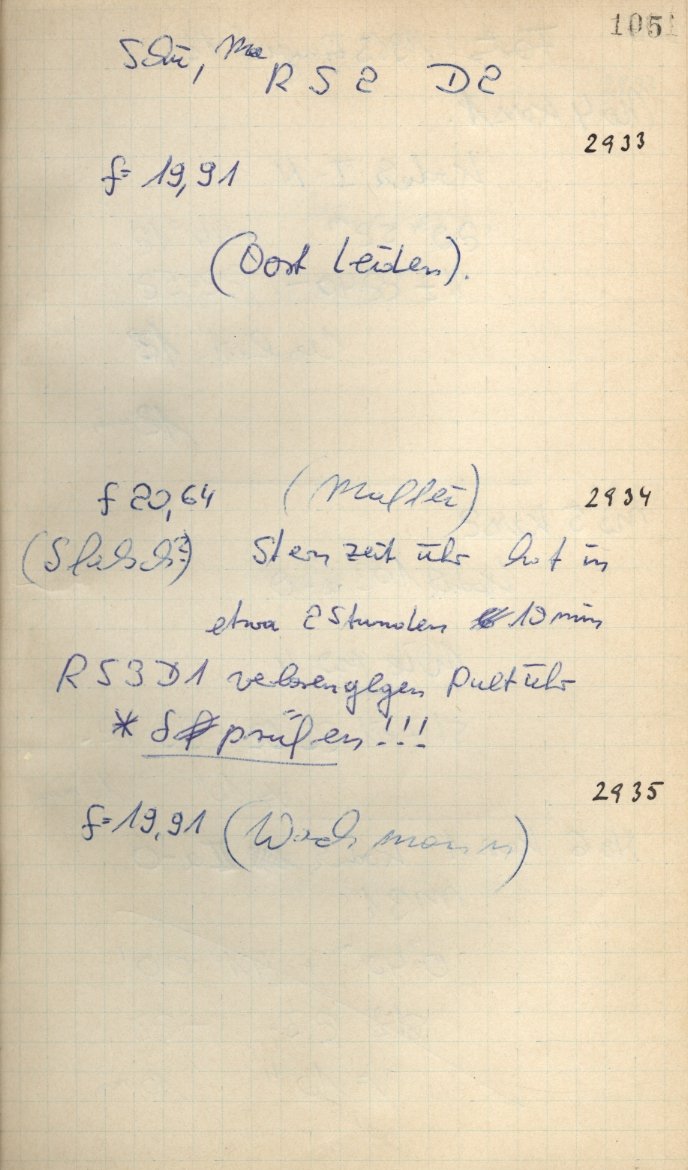 1051
Schü, Ma
RS2 D2
2933
f= 19,91
(Oort Leiden).
f 20,64 (Muller) 2934
Sternzeit uhr hat in
etwa 2 Stunden 10 min
RS3D1 verloren gegen Pultuhr
* prüfen!!!
2935
f=19,91 (Wachmann)